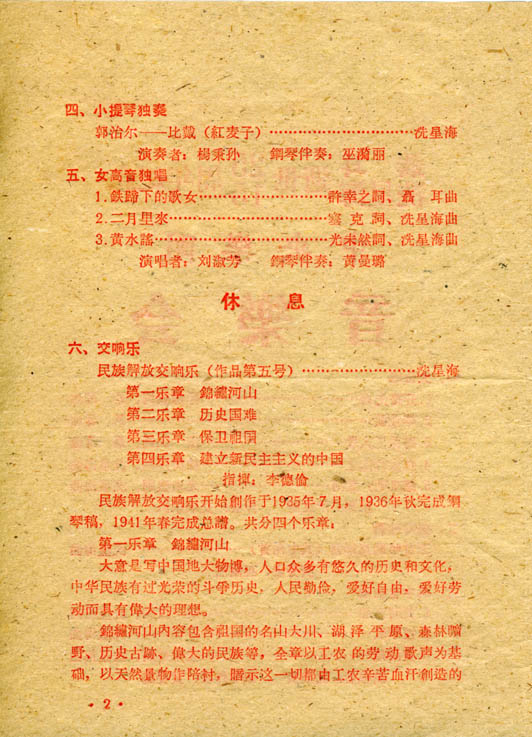 四、小提琴独奏
郭治尔——比戴（紅麦子）…………………………冼星海
演奏者：楊秉孙　鋼琴伴奏：巫漪丽
五、女高音独唱
1.鉄蹄下的歌女……………………許幸之詞、聶　耳曲
2.二月里來…………………………塞　克　詞、冼星海曲
3.黄水謠……………………………光未然詞、冼星海曲
演唱者：刘淑芳　鋼琴伴奏：黄曼璐
休　息
六、交响乐
民族解放交响乐（作品第五号）……………………冼星海
第一乐章　錦繡河山
第二乐章　历史国难
第三乐章　保卫祖国
第四乐章　建立新民主主义的中国
指揮：李德倫
民族解放交响乐开始創作于1935年7月，1936年秋完成鋼
琴稿，1941年春完成总譜。共分四个乐章：
第一乐章　錦繡河山
大意是写中国地大物博，人口众多有悠久的历史和文化，
中华民族有过光荣的斗爭历史，人民勤俭，爱好自由，爱好劳
动而具有偉大的理想。
錦繡河山內容包含祖国的名山大川、湖泽平原、森林曠
野、历史古跡、偉大的民族等，全章以工农的劳动歌声为基
础，以天然景物作陪衬，暗示这一切都由工农辛苦血汗創造的
·2·